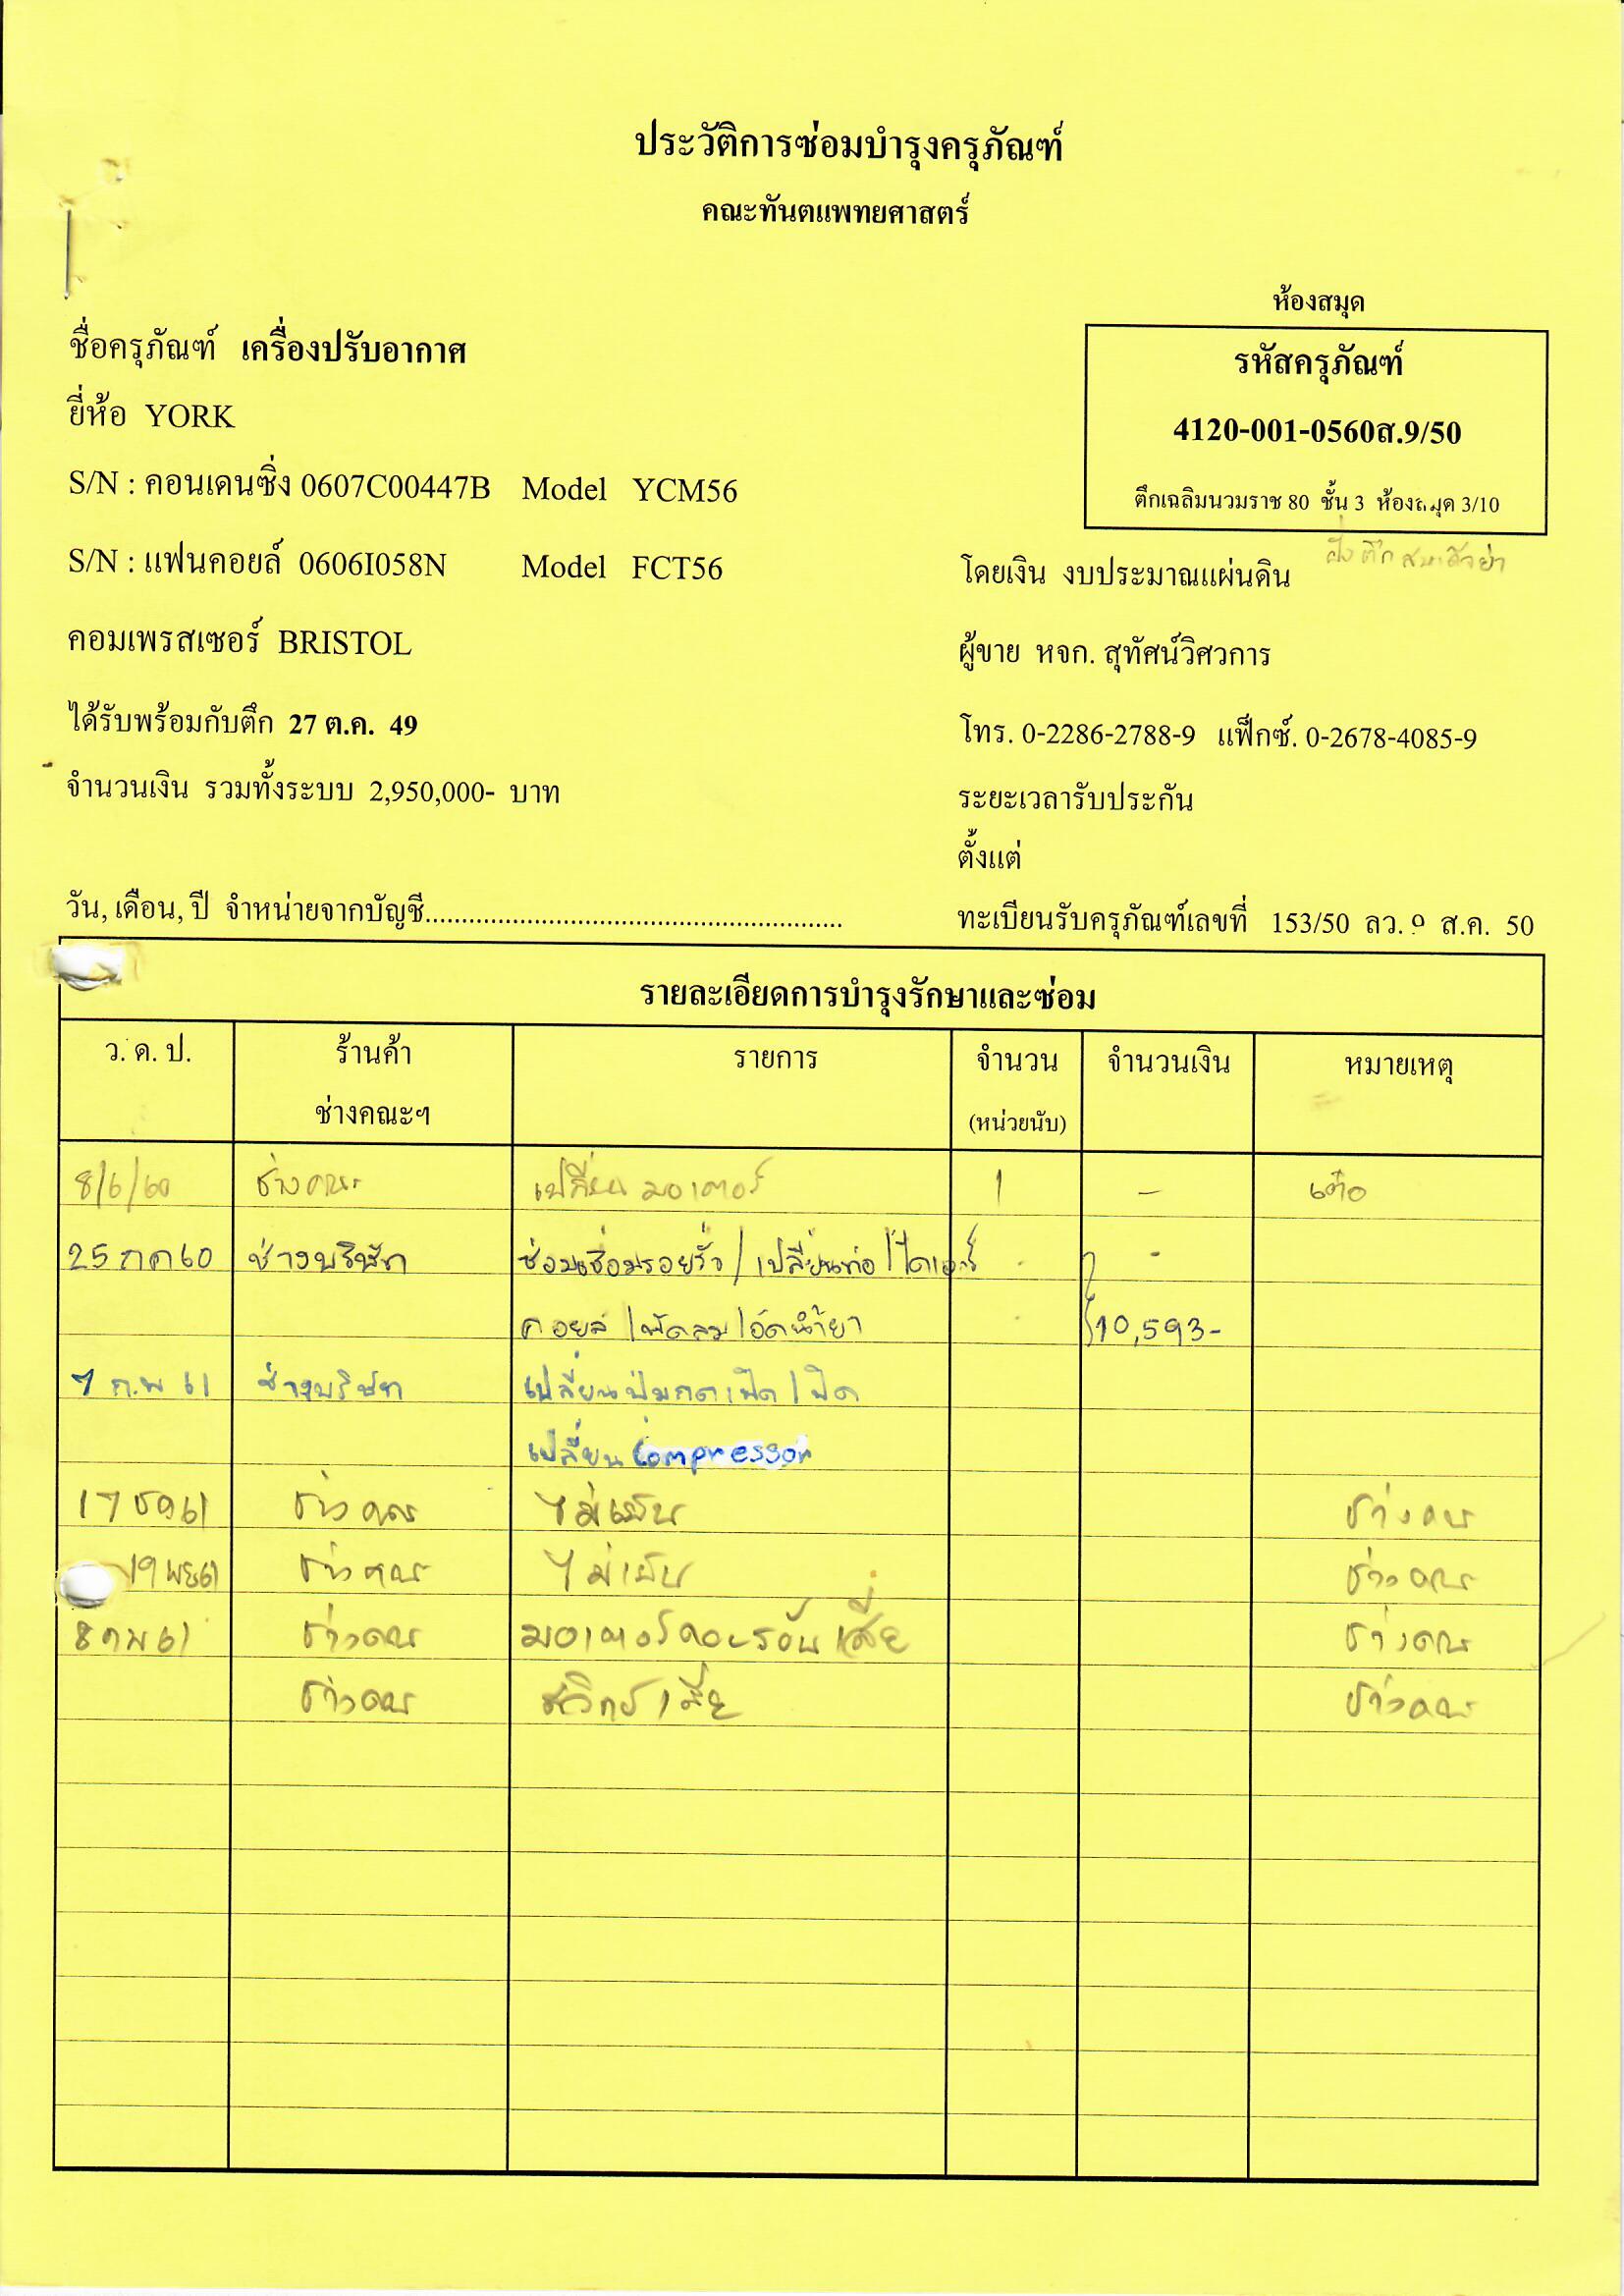 ประวัติการซ่อมบำรุงครุภัณฑ์
คณะทันตแพทยศาสตร์
ห้องสมุด
ชื่อครุภัณฑ์ เครื่องปรับอากาศ
รหัสครุภัณฑ์
ยี่ห้อ YORK
4120-001-0560ส.9/50
S/N : คอนเดนซิ่ง 0607C00447B Model YCM56
ตึกเฉลิมนวมราช 80 ชั้น 3 ห้องสมุด 3/10
ฝั่งตึก
S/N : แฟนคอยล์ 0606I058N Model FCT56
โดยเงิน งบประมาณแผ่นดิน
คอมเพรสเซอร์ BRISTOL
ผู้ขาย หจก. สุทัศน์วิศวการ
ได้รับพร้อมกับตึก 27 ต.ค. 49
โทร. 0-2286-2788-9 แฟ็กซ์. 0-2678-4085-9
จำนวนเงิน รวมทั้งระบบ 2,950,000- บาท
ระยะเวลารับประกัน
ตั้งแต่
วัน, เดือน, ปี จำหน่ายจากบัญชี..........................................................
ทะเบียนรับครุภัณฑ์เลขที่ 153/50 ลว. ส.ค. 50
รายละเอียดการบำรุงรักษาและซ่อม
ว. ด. ป. ร้านค้า รายการ จำนวน จำนวนเงิน หมายเหตุ
ช่างคณะฯ (หน่วยนับ)
8/6/60 ช่างคณะ เปลี่ยนมอเตอร์ 1 -
25 กค 60 ช่างบริษัท ซ่อมเชื่อมรอยรั่ว / เปลี่ยนท่อ / -
คอยล์ / พัดลม / อัดน้ำยา 10,593-
7 ก.พ 61 ช่างบริษัท เปลี่ยนปุ่มกดเปิด / ปิด
เปลี่ยน Compressor
17 ธค 61 ช่างคณะ ไม่เย็น ช่างคณะ
19 พย 61 ช่างคณะ ไม่เย็น ช่างคณะ
8 กพ 61 ช่างคณะ มอเตอร์คอยร้อนเสีย ช่างคณะ
ช่างคณะ สวิทช์เสีย ช่างคณะ